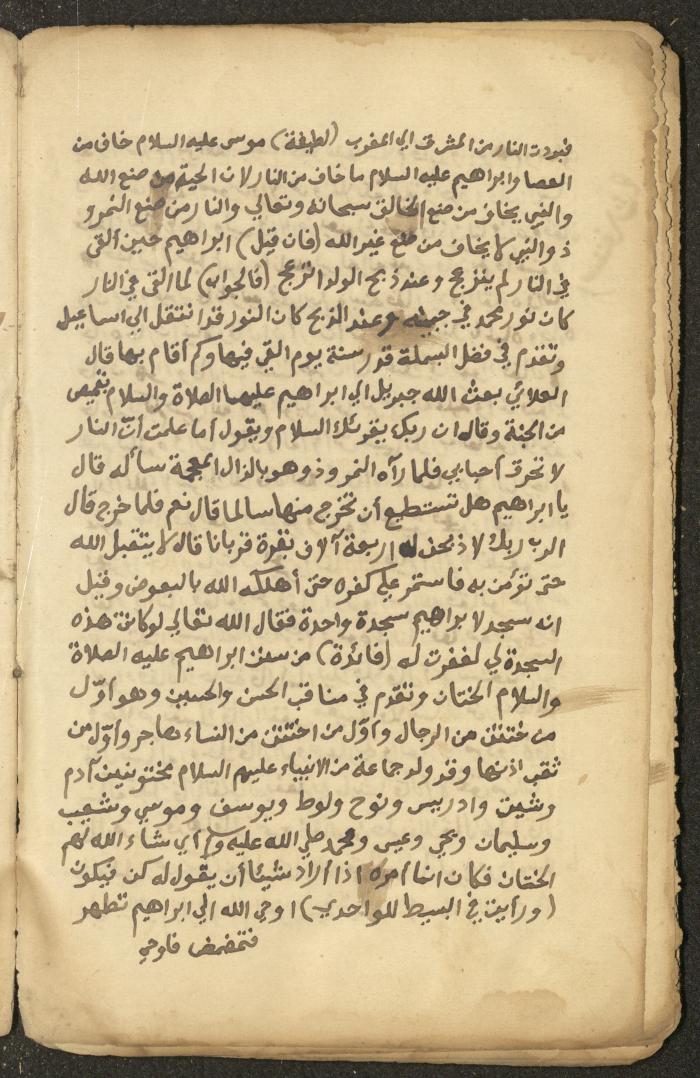 فبودت النار من المشرق الي المغرب (لطيفة) موسى عليه السلام خاف من
العصا وابراهيم عليه السلام ما خاف من النار لان الحية من صنع الله
والنبي يخاف من صنع الخالق سبحانه وتعالي والنار من صنع النمرو
ذ والنبي لا يخاف من صنع غير الله (فان قيل) ابراهيم حين ألقى
في النار لم ينزعج وعند ذبح الولد انزعج (فالجواب) لما القى في النار
كان نور محمد في جبينه وعند الذبح كان النور قد انتقل الي اسماعيل
وتقدم في فضل البسملة قدر سنة يوم القي فيها وكم أقام بها قال
العلائي بعث الله جبريل الي ابراهيم عليهما الصلاة والسلام بقميص
من الجنة وقال ان ربك يقرئك السلام ويقول أما علمت أنّ النار
لا تحرق أحبابي فلما رآه النمروذ وهو بالذال المعجمة سأله قال
يا ابراهيم هل تستطيع أن تخرج منها سالما قال نعم فلما خرج قال
الرب ربك لاذبحن له اربعة آلاف بقرة قربانا قال لا يتقبل الله
حتى تؤمن به فاستمر علي كفره حتى أهلكه الله بالبعوض وقيل
انه سجد لابراهيم سجدة واحدة فقال الله تعالي لو كانت هذه
السجدة لي لغفرت له (فائدة) من سنن ابراهيم عليه الصلاة
والسلام الختان وتقدم في مناقب الحسن والحسين وهو أوّل
من ختتن من الرجال وأوّل من اختتن من النساء هاجر وأوّل من
ثقب اذنها وقد ولد جماعة من الانبياء عليهم السلام مختونين آدم
وشيث وادريس ونوح ولوط ويوسف وموسي وشعيب
وسليمان ويحي وعيسى ومحمد صلي الله عليه وسلم أي شاء الله لهم
الختان فكان انما أمره اذا أراد شيئا أن يقول له كن فيكون
(ورأيت في البسيط للواحدي) اوحي الله الي ابراهيم تطهر
فتمضمض فاوحي